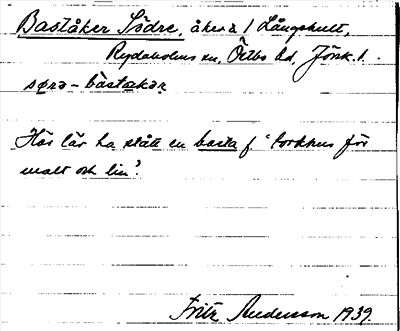 Baståker Södre, åker å 1 Långhult,
Rydaholms sn, Östbo hd, Jönk. l.
sørə - båstakər
Här lär ha stått en basta f. 'torkhus för
malt och lin'.
Fritz Andersson 1939.